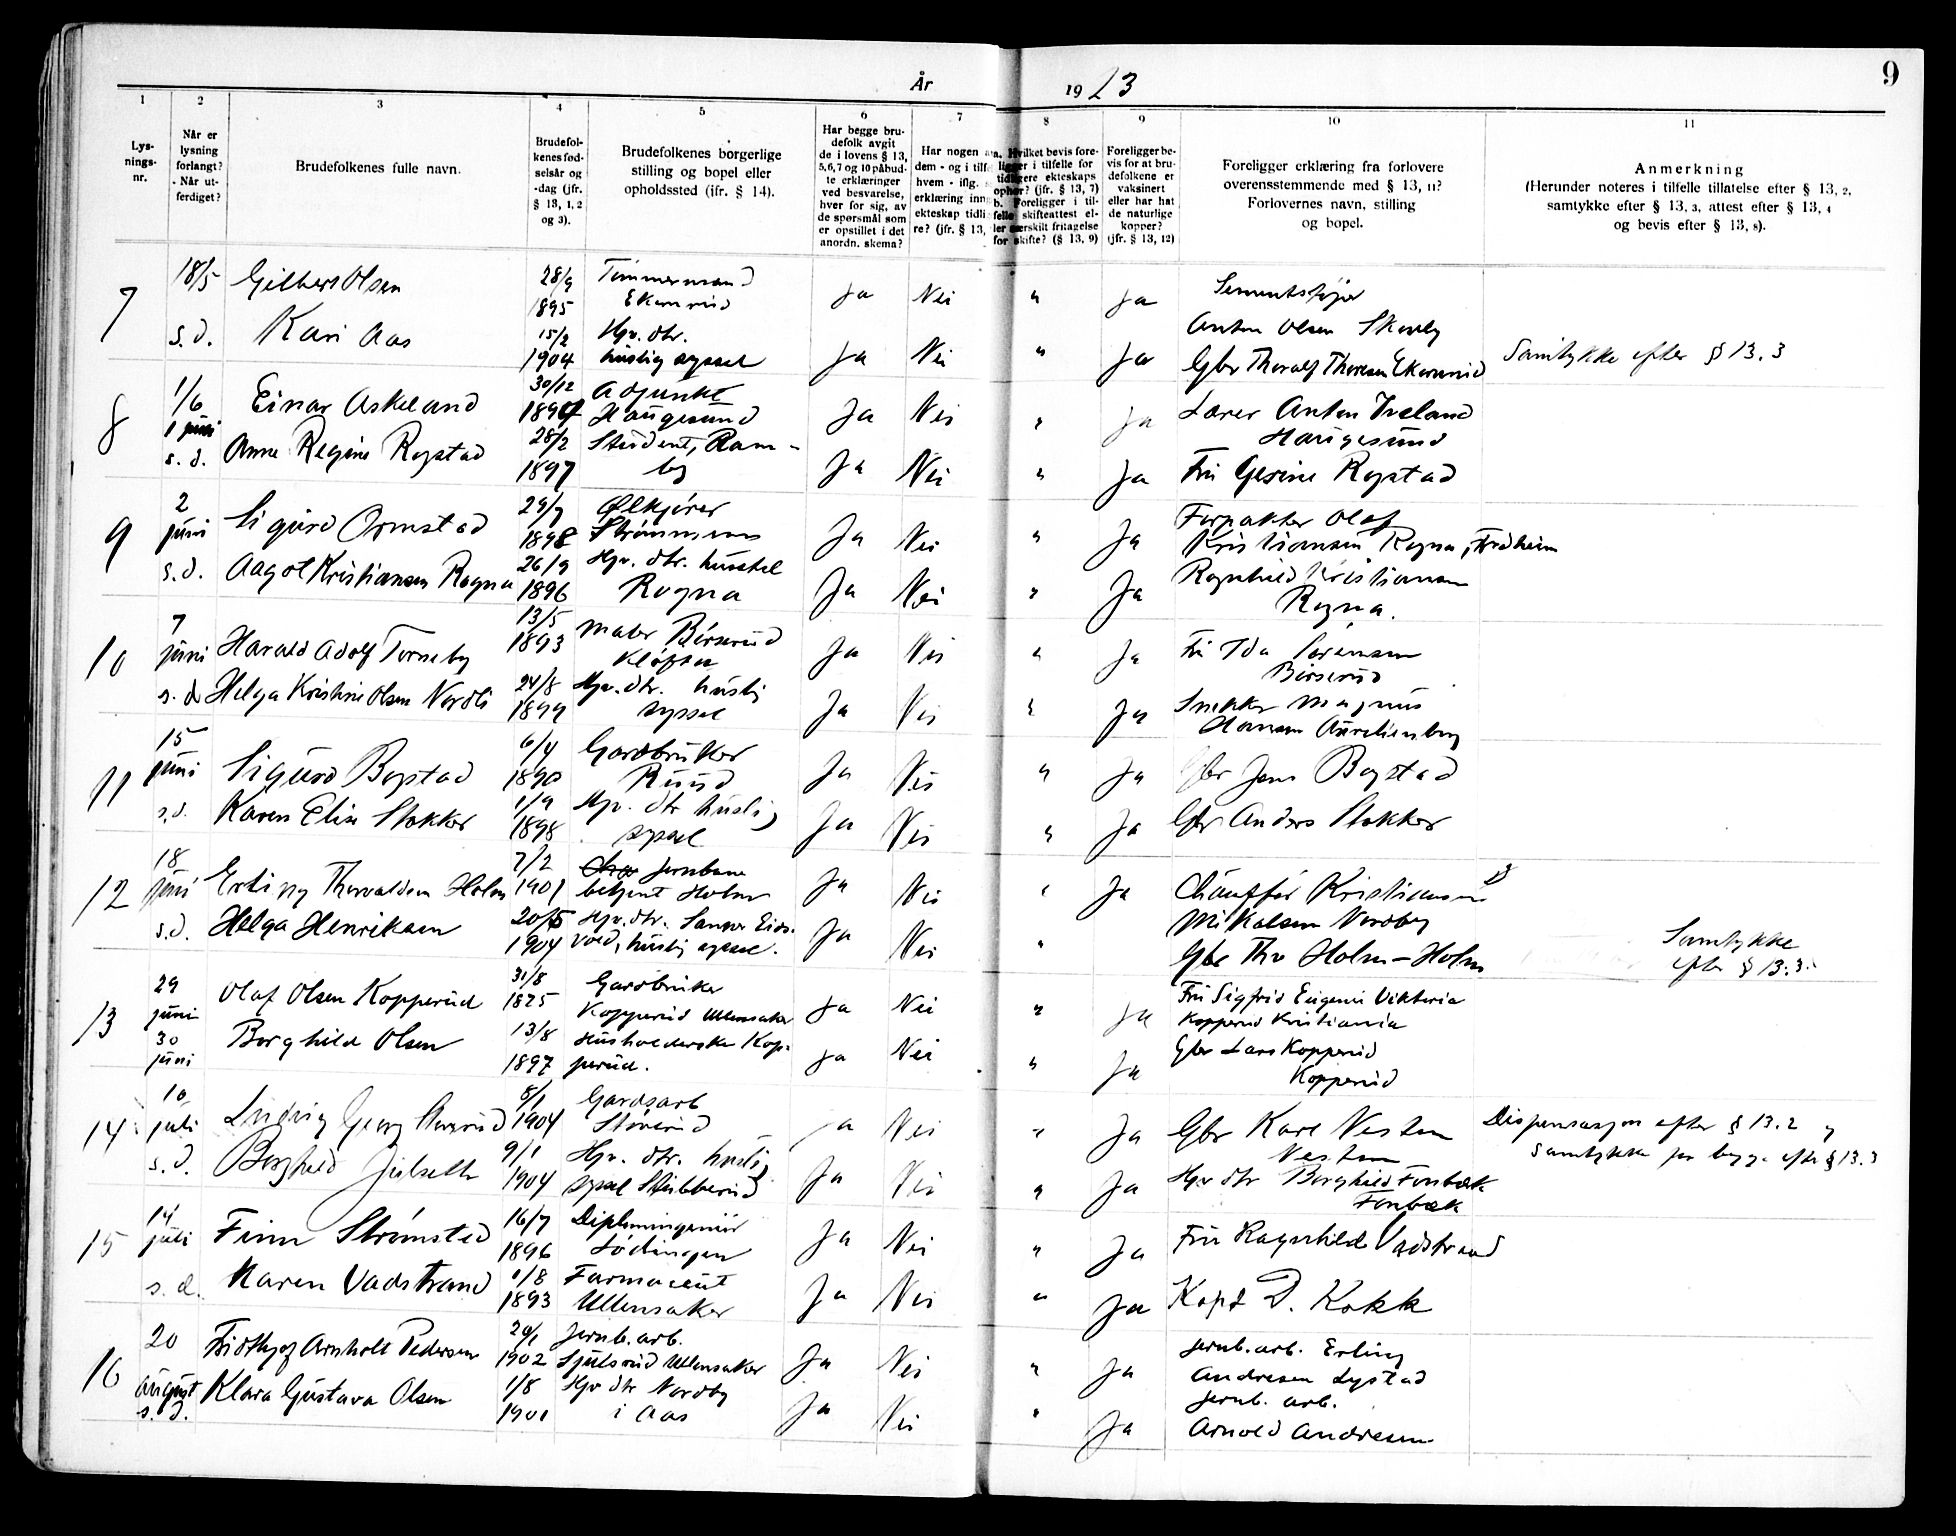 År 1923
9
1 2 3 4 5 6 7 8 9 10 11
Lys-
nings-
nr.
Når er
lysning
forlangt?
Når ut-
ferdiget?
Brudefolkenes fulle navn.
Brudefol-
kenes fød-
selsår og
-dag (jfr.
§ 13, 1, 2
og 3).
Brudefolkenes borgerlige
stilling og bopel eller
opholdssted (jfr. § 14).
Har begge bru-
defolk avgit
de i lovens § 13,
5,6,7 og 10 påbud-
te erklæringer
ved besvarelse,
hver for sig, av
de spørsmål som
er opstillet i det
anordn. skema?
Har nogen av
dem - og i tilf
hvem - iflg.
erklæring inng
ekteskap tidli
re? (jfr. § 13,
a. Hvilket bevis fore-
ligger i tilfelle for
tidligere ekteskaps
ophør? (jfr. § 13, 7)
b. Foreligger i til-
felle skifteattest el-
ler særskilt fritagelse
for skifte? (§ 13, 9)
Foreligger be-
vis for at bru-
defolkene er
vaksinert
eller har hat
de naturlige
kopper?
(jfr. § 13, 12)
Foreligger erklæring fra forlovere
overensstemmende med § 13, 11?
Forlovernes navn, stilling
og bopel.
Anmerkning
(Herunder noteres i tilfelle tillatelse efter § 13, 2,
samtykke efter § 13, 3, attest efter § 13, 4
og bevis efter § 13, 8).
7
18/5 Gilbert Olsen 28/9 1895 Tømmermand Ekornrud Ja Nei " Ja Sementstøper
Anton Olsen
s.d. Kari Aas 15/2 1904 Hjv. dtr. huslig syssel Ja Nei " Ja Gbr Thoralf Thoresen Ekornrud Samtykke efter § 13.3
8
1/6 Einar Askeland 30/12 Adjunkt Haugesund Ja Nei " Ja Lærer Anton Iveland
Haugesund
1 juni
s.d. Anne Regine Rogstad 28/2 1897 Student, Ram-
by Ja Nei " Ja Fru Gesine Rogstad
9
2 juni Sigurd Ormstad 29/7 1898 Ølkjører
Strømmen Ja Nei " Ja Forpakter Olaf
Kristiansen Rogna, Trødheim
s.d. Aagot Kristiansen Rogna 26/9 1896 Hjv. dtr. husstel
Rogna Ja Nei " Ja Ragnhild Kristiansen
Rogna.
10
7 juni Harald Adolf Torneby 13/5 1893 Maler Børserud
Kløfta Ja Nei " Ja Fru Ida Sørensen
Børserud
s.d. Helga Kristine Olsen Nordli 24/8 1899 Hjv. dtr. huslig
syssel Ja Nei " Ja Snekker Magnus
Hansen Aurelienberg
11
15 juni Sigurd Bogstad 6/4 1890 Gardbruker
Ruud Ja Nei " Ja Gbr Jens Bogstad
s.d. Karen Elise Stokker 1/9 1898 Hjv. dtr huslig
syssel Ja Nei " Ja Gbr Anders Stokker
12
18 juni Erling Thorvaldsen Holm 7/2 1901 Jernbane
betjent Holm Ja Nei " Ja Chauffør Kristiansen
Mikalsen Nordby
s.d. Helga Henriksen 20/5 1904 Hjv. dtr. Sanner Eids-
vold, huslig syssel. Ja Nei " Gbr Thv Holm - Holm Samtykke
efter § 13.3.
13
29 juni Olaf Olsen Kopperud 31/8 1875 Gardbruker
Kopperud Ullensaker Ja Nei " Ja Fru Sigfrid Eugenie Viktoria
Kopperud Kristiania
30 juni Borghild Olsen 13/8 1897 Husholderske Kop-
perud. Ja Nei " Ja Gbr Lars Kopperud
Kopperud
14
10 juli Ludvig Georg 8/1 1904 Gardsarb
Støverud Ja Nei " Ja Gbr Kare Nesten
Nesten Dispensasjon efter § 13.2 og
samtykke for begge efter § 13.3
s.d. Borghild Julseth 9/1 1904 Hjv. dtr. huslig
syssel Stubberud Ja Nei " Ja Hjv dtr Borghild Fonbæk
Fonbæk
15
14 juli Finn Strømsted 16/7 1896 Diplomingeniør
Lødingen Ja Nei " Ja Fru Ragnhild Vadstrand
s.d. Karen Vadstrand 1/8 1893 Farmaceut
Ullensaker Ja Nei " Ja Kapt D. Kokk
16
20 Fridthjof Arnholt Pedersen 24/1 1902 Jernb. arb.
Ullensaker Ja Nei " Ja Jernb. arb. Erling
Andresen Lystad
august
s.d. Klara Gustava Olsen 1/8 1901 Hjv dtr Nordby
i Aas Ja Nei " Ja Jernb. arb.
Arnold Andresen